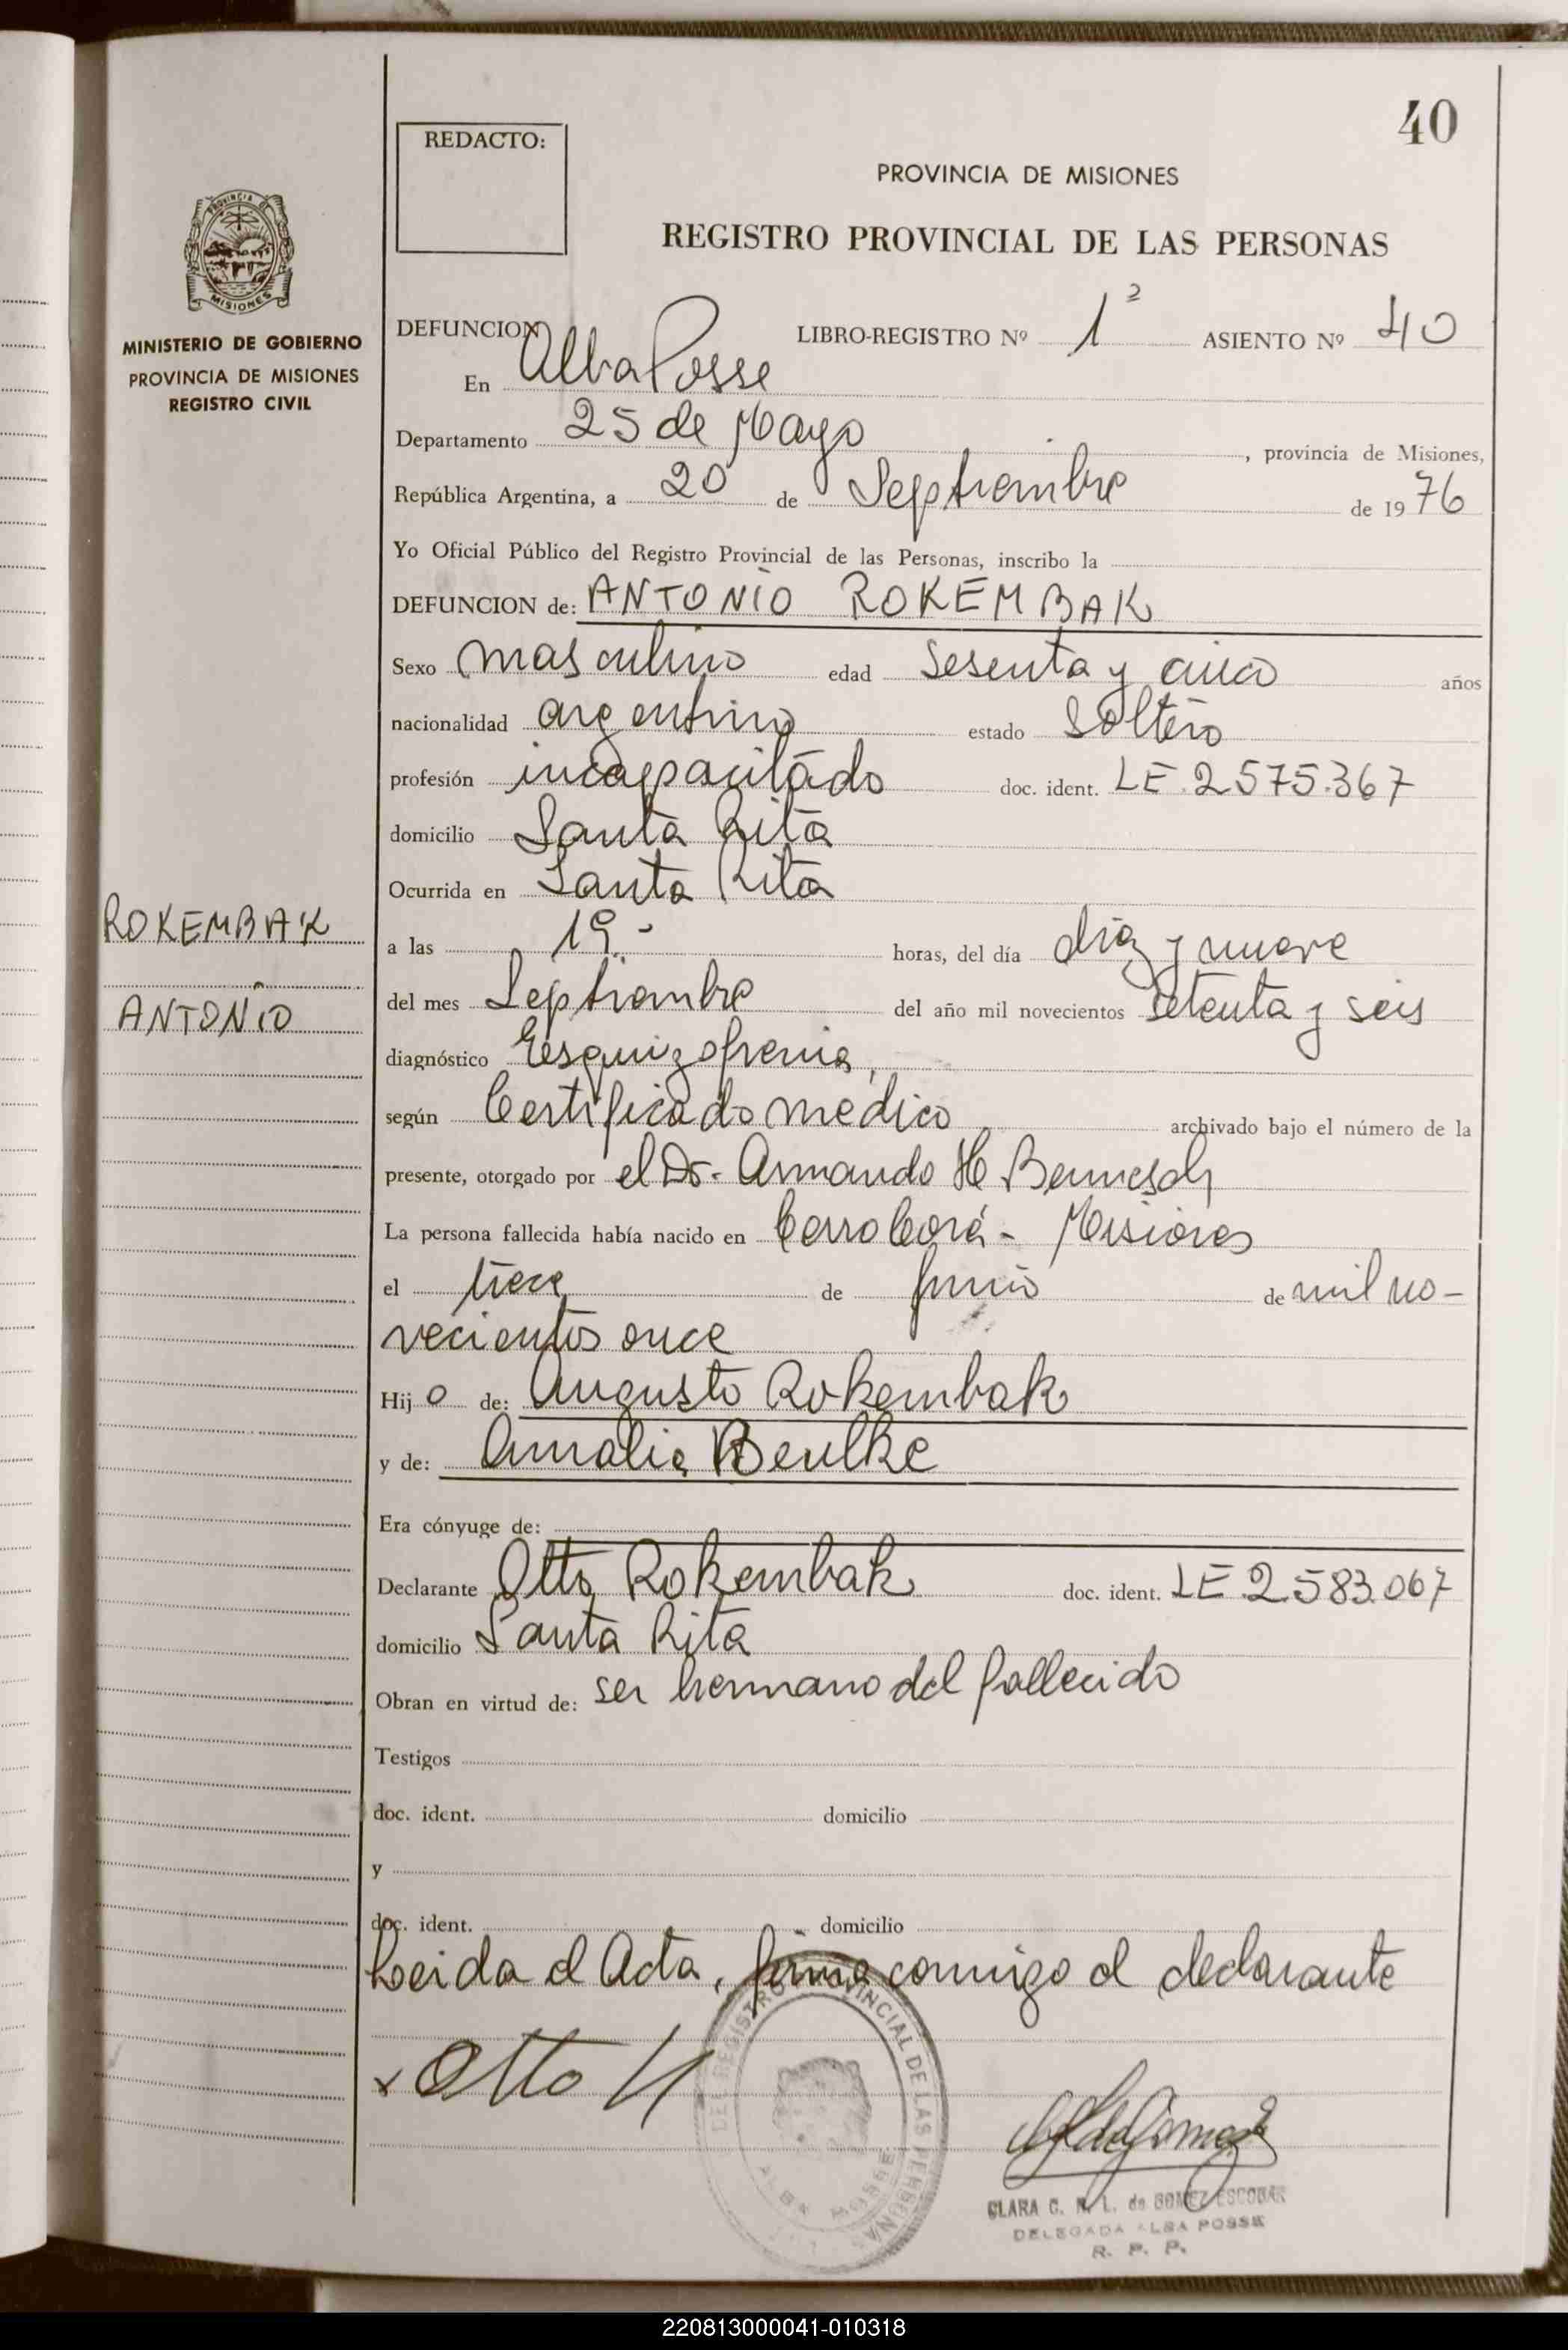 40
REDACTO:
PROVINCIA DE MISIONES
REGISTRO PROVINCIAL DE LAS PERSONAS
PROVINCIA DE
MISIONES
MINISTERIO DE GOBIERNO
PROVINCIA DE MISIONES
REGISTRO CIVIL
DEFUNCION LIBRO-REGISTRO Nº 1ª ASIENTO Nº 40
En Alba Posse
Departamento 25 de Mayo, provincia de Misiones,
República Argentina, a 20 de Septiembre de 1976
Yo Oficial Público del Registro Provincial de las Personas, inscribo la
DEFUNCION de: ANTONIO ROKEMBAK
Sexo masculino edad Sesenta y cinco años
nacionalidad argentino estado Soltero
profesión incapacitado doc. ident. LE.2575.367
domicilio Santa Rita
Ocurrida en Santa Rita
ROKEMBAK
ANTONIO
a las 19.- horas, del día diez y nueve
del mes Septiembre del año mil novecientos setenta y seis
diagnóstico Esquizofrenia,
según Certificado médico archivado bajo el número de la
presente, otorgado por el Dr. Armando H
La persona fallecida había nacido en Cerro Corá - Misiones
el trece de Junio de mil no-
vecientos once
Hijo de: Augusto Rokembak
y de: Amalia Beulke
Era cónyuge de:
Declarante Otto Rokembak doc. ident. LE.2.583.067
domicilio Santa Rita
Obran en virtud de: ser hermano del fallecido
Testigos
doc. ident. domicilio
y
doc. ident. domicilio
Leida el Acta, firma conmigo el declarante
x Otto
REGISTRO PROVINCIAL DE LAS PERSONAS
ALBA POSSE
CLARA C. N. L. de GOMEZ ESCOBAR
DELEGADA ALBA POSSE
R. P. P.
220813000041-010318